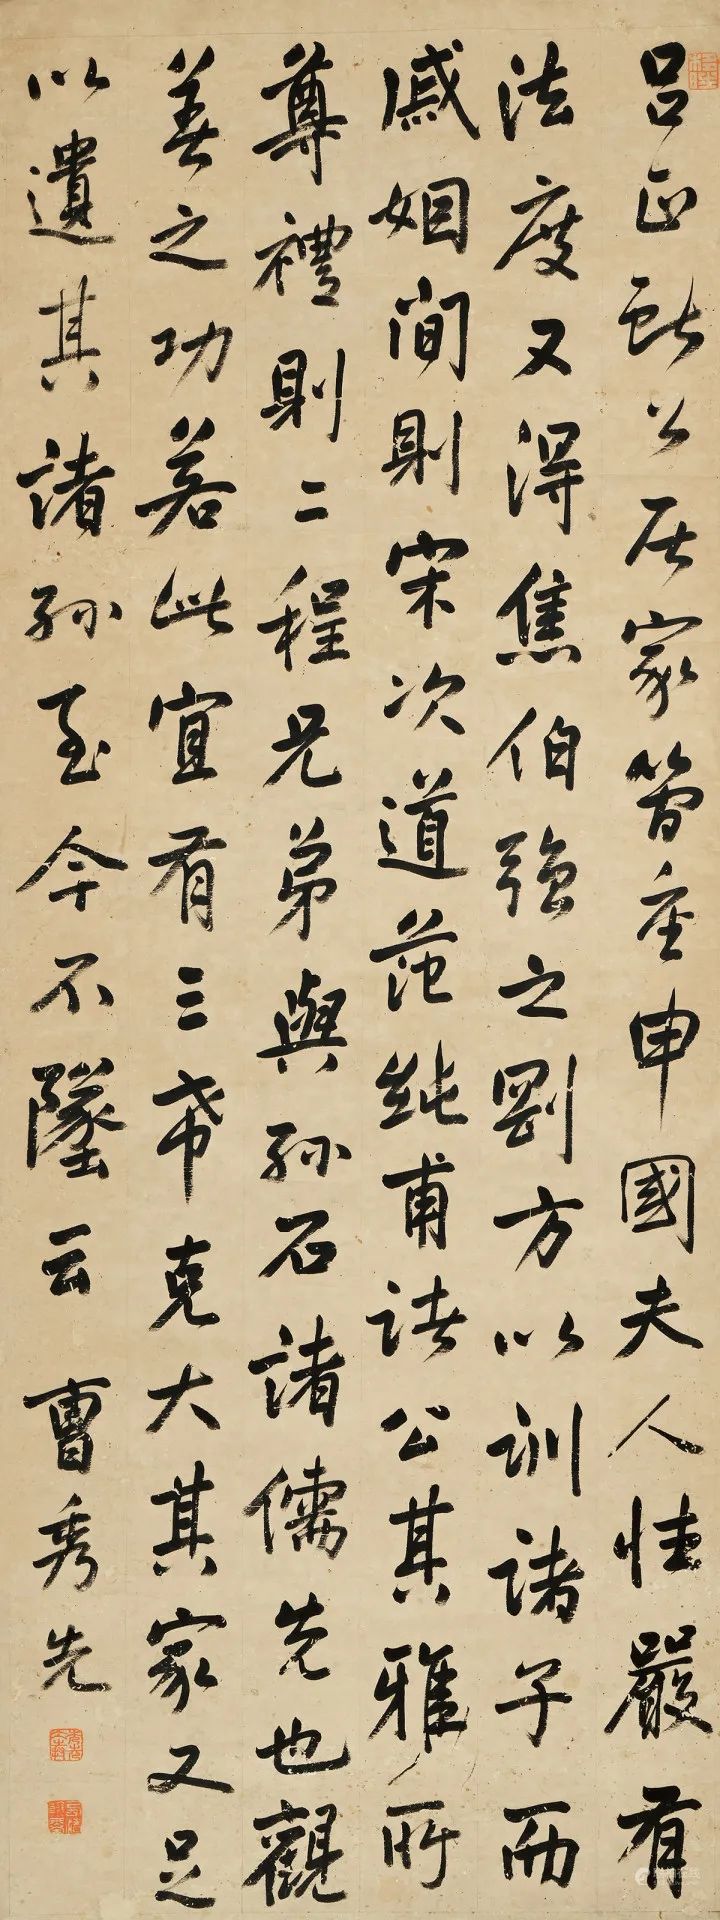 呂正獻公居家簡重申國夫人性嚴有
法度又得焦伯強之剛方以訓諸子而
戚姻間則宋次道范純甫諸公其雅所
尊禮則二程兄弟與孫石諸儒先也觀
善之功若此宜有三希克大其家又足
以遺其諸孫至今不墜云 曹秀先